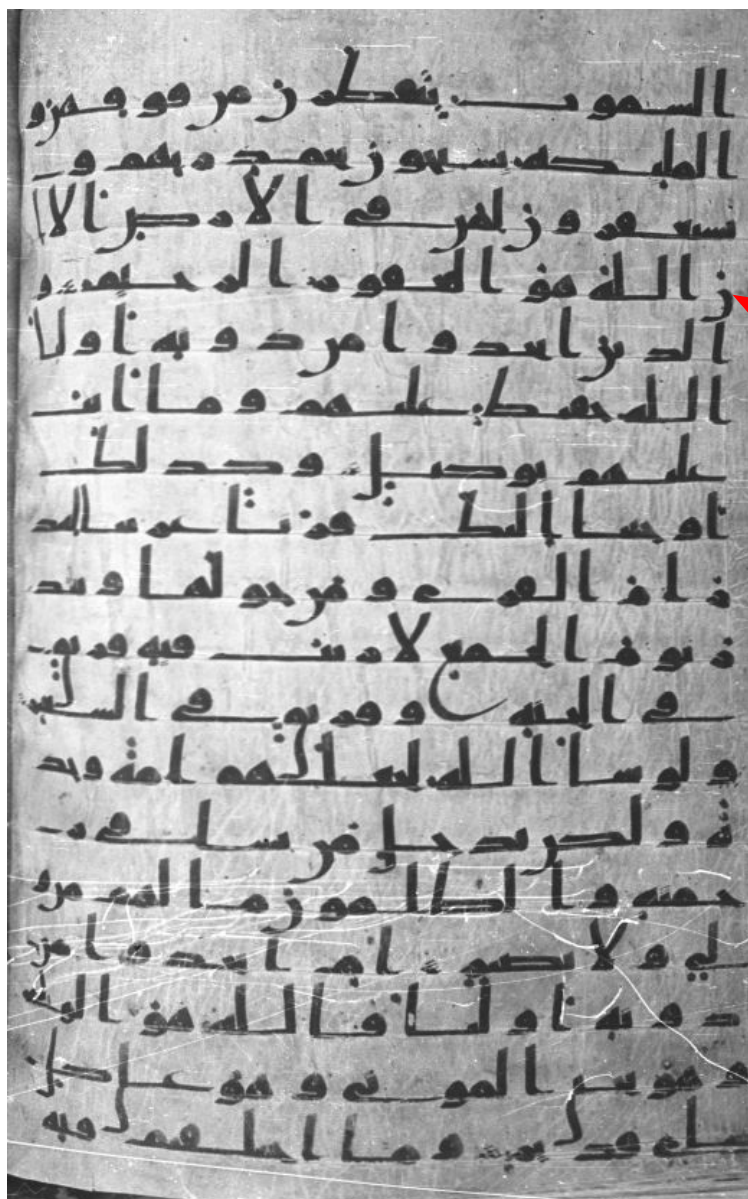 السموت يتفطرن من فوقهن و
الملئكة يسبحون بحمد ربهم و
يستغفرون لمن في الارض الا ا
ن الله هو الغفور الرحيم و
الذين اتخذوا من دونه اوليا
الله حفيظ عليهم وما انت
عليهم بوكيل وكذلك
اوحينا اليك قرانا عربيا لتنذ
ر ام القرى ومن حولها وتنذ
ر يوم الجمع لا ريب فيه فريق
في الجنة وفريق في السعير
ولو شا الله لجعلهم امة وحد
ة ولكن يدخل من يشا في ر
حمته والظلمون ما لهم من و
لي ولا نصير ام اتخذوا من
دونه اوليا فالله هو الولي
و هو يحي الموتى وهو على كل
شي قدير وما اختلفتم فيه